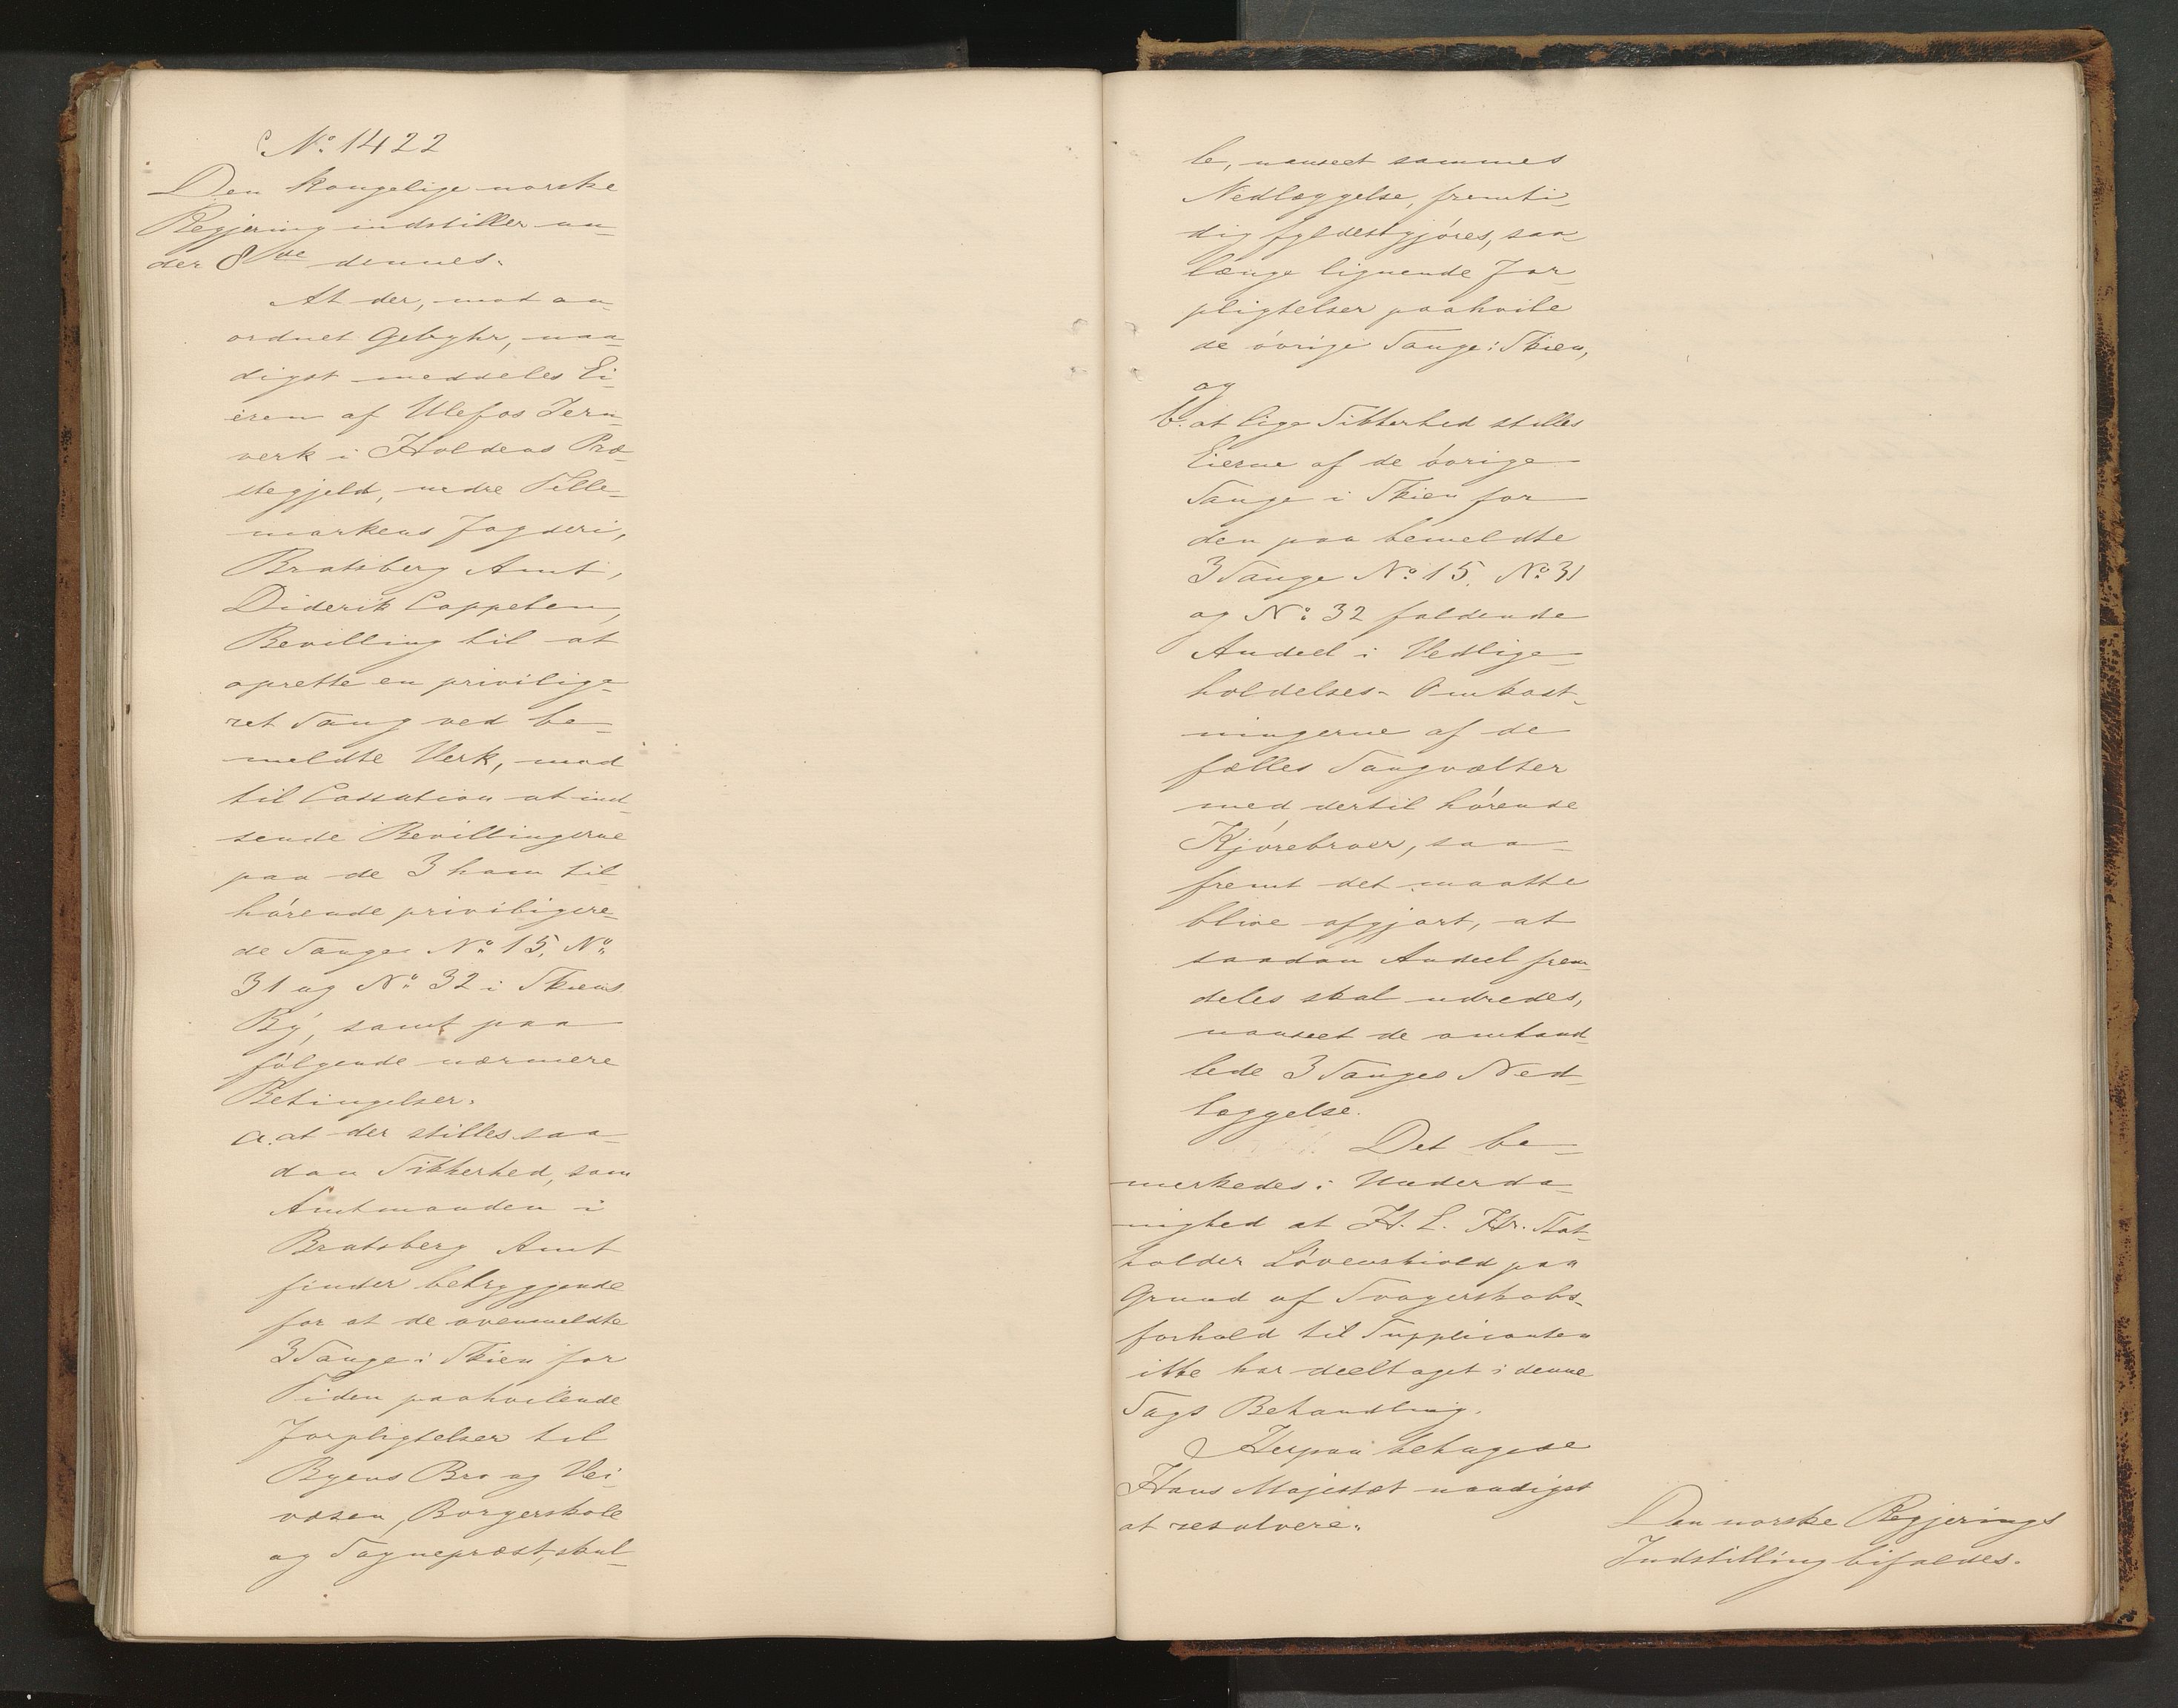 No. 1422
Den kongelige norske
Regjering indstiller un-
der 8de dennes.
At der, mod an-
ordnet Gebyhr, naa-
digst meddeles Ei-
eren af Ulefos Jern-
verk i Holdens Præ-
stegjeld, nedre Telle-
markens Fogderi,
Bratsberg Amt,
Diderik Cappelen,
Bevilling til at
oprette en privilige-
ret Saug ved be-
meldte Verk, mod
til Cassation at ind-
sende Bevillingerne
paa de 3 ham til-
hørende priviligere-
de Sauge No. 15, No.
31 og No. 32 i Skiens
By, samt paa
følgende nærmere
Betingelser.
a. at der stilles saa-
dan Sikkerhed, som
Amtmanden i
Bratsberg Amt
finder betryggende
for at de ovenmeldte
3 Sauge i Skien for
Tiden paahvilende
Forpligtelser til
Byens Bro og Vei-
væsen, Borgerskole
og Sognepræst, skul-
le, uanseet sammes
Nedlæggelse, fremti-
dig fyldestgjøres, saa-
længe lignende For-
pligtelser paahvile
de øvrige Sauge i Skien,
og
b. at lige Sikkerhed stilles
Eierne af de øvrige
Sauge i Skien for
den paa bemeldte
3 Sauge No. 15, No. 31
og No. 32 faldende
Andeel i Vedlige-
holdelses-Omkost-
ningerne af de
fælles Saugvælter
med dertil hørende
Kjørebroer, saa-
fremt det maatte
blive afgjort, at
saadan Andeel frem-
deles skal udredes,
uanseet de omhand-
lede 3 Sauges Ned-
læggelse.
Det be-
mærkedes i Underda-
nighed at H. E. Hr. Stat-
holder Løvenskiold paa
Grund af Svogerskabs-
forhold til Supplicanten
ikke har deeltaget i denne
Sags Behandling.
Herpaa behagede
Hans Majestæt naadigst
at resolvere.
Den norske Regjerings
Indstilling bifaldes.